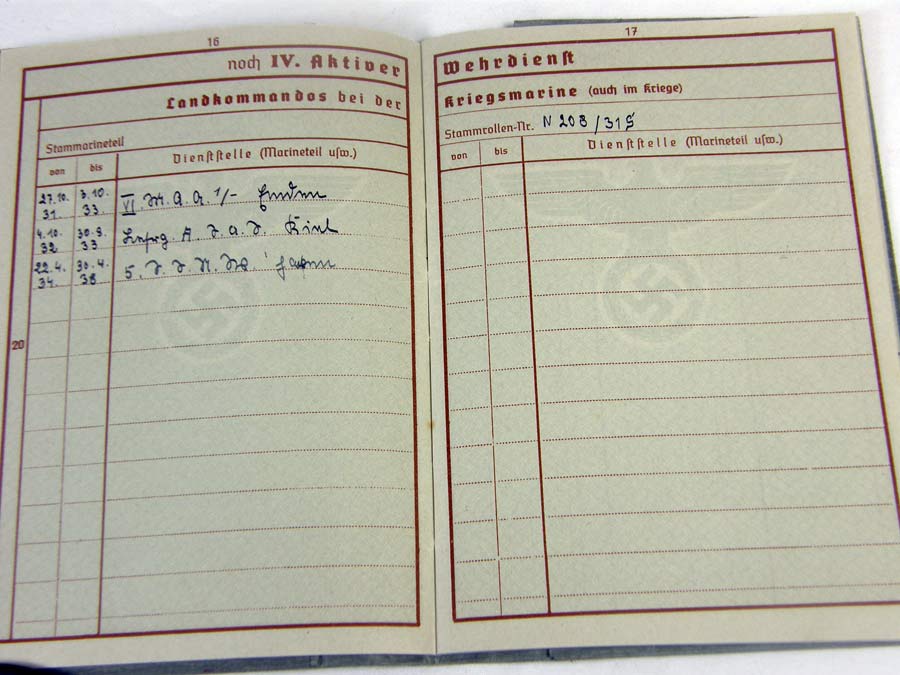 16
noch IV. Aktiver
Landkommandos bei der
Stammarineteil
von bis Dienststelle (Marineteil usw.)
27.10. 31. 3.10. 33. VI. M. A. A. 1/-
4.10. 32 30.9. 33 A. J. a. J. Kiel
22.4. 34. 30.4. 38 5.
20
17
Wehrdienst
Kriegsmarine (auch im Kriege)
Stammrollen-Nr. N 208/31 S
von bis Dienststelle (Marineteil usw.)